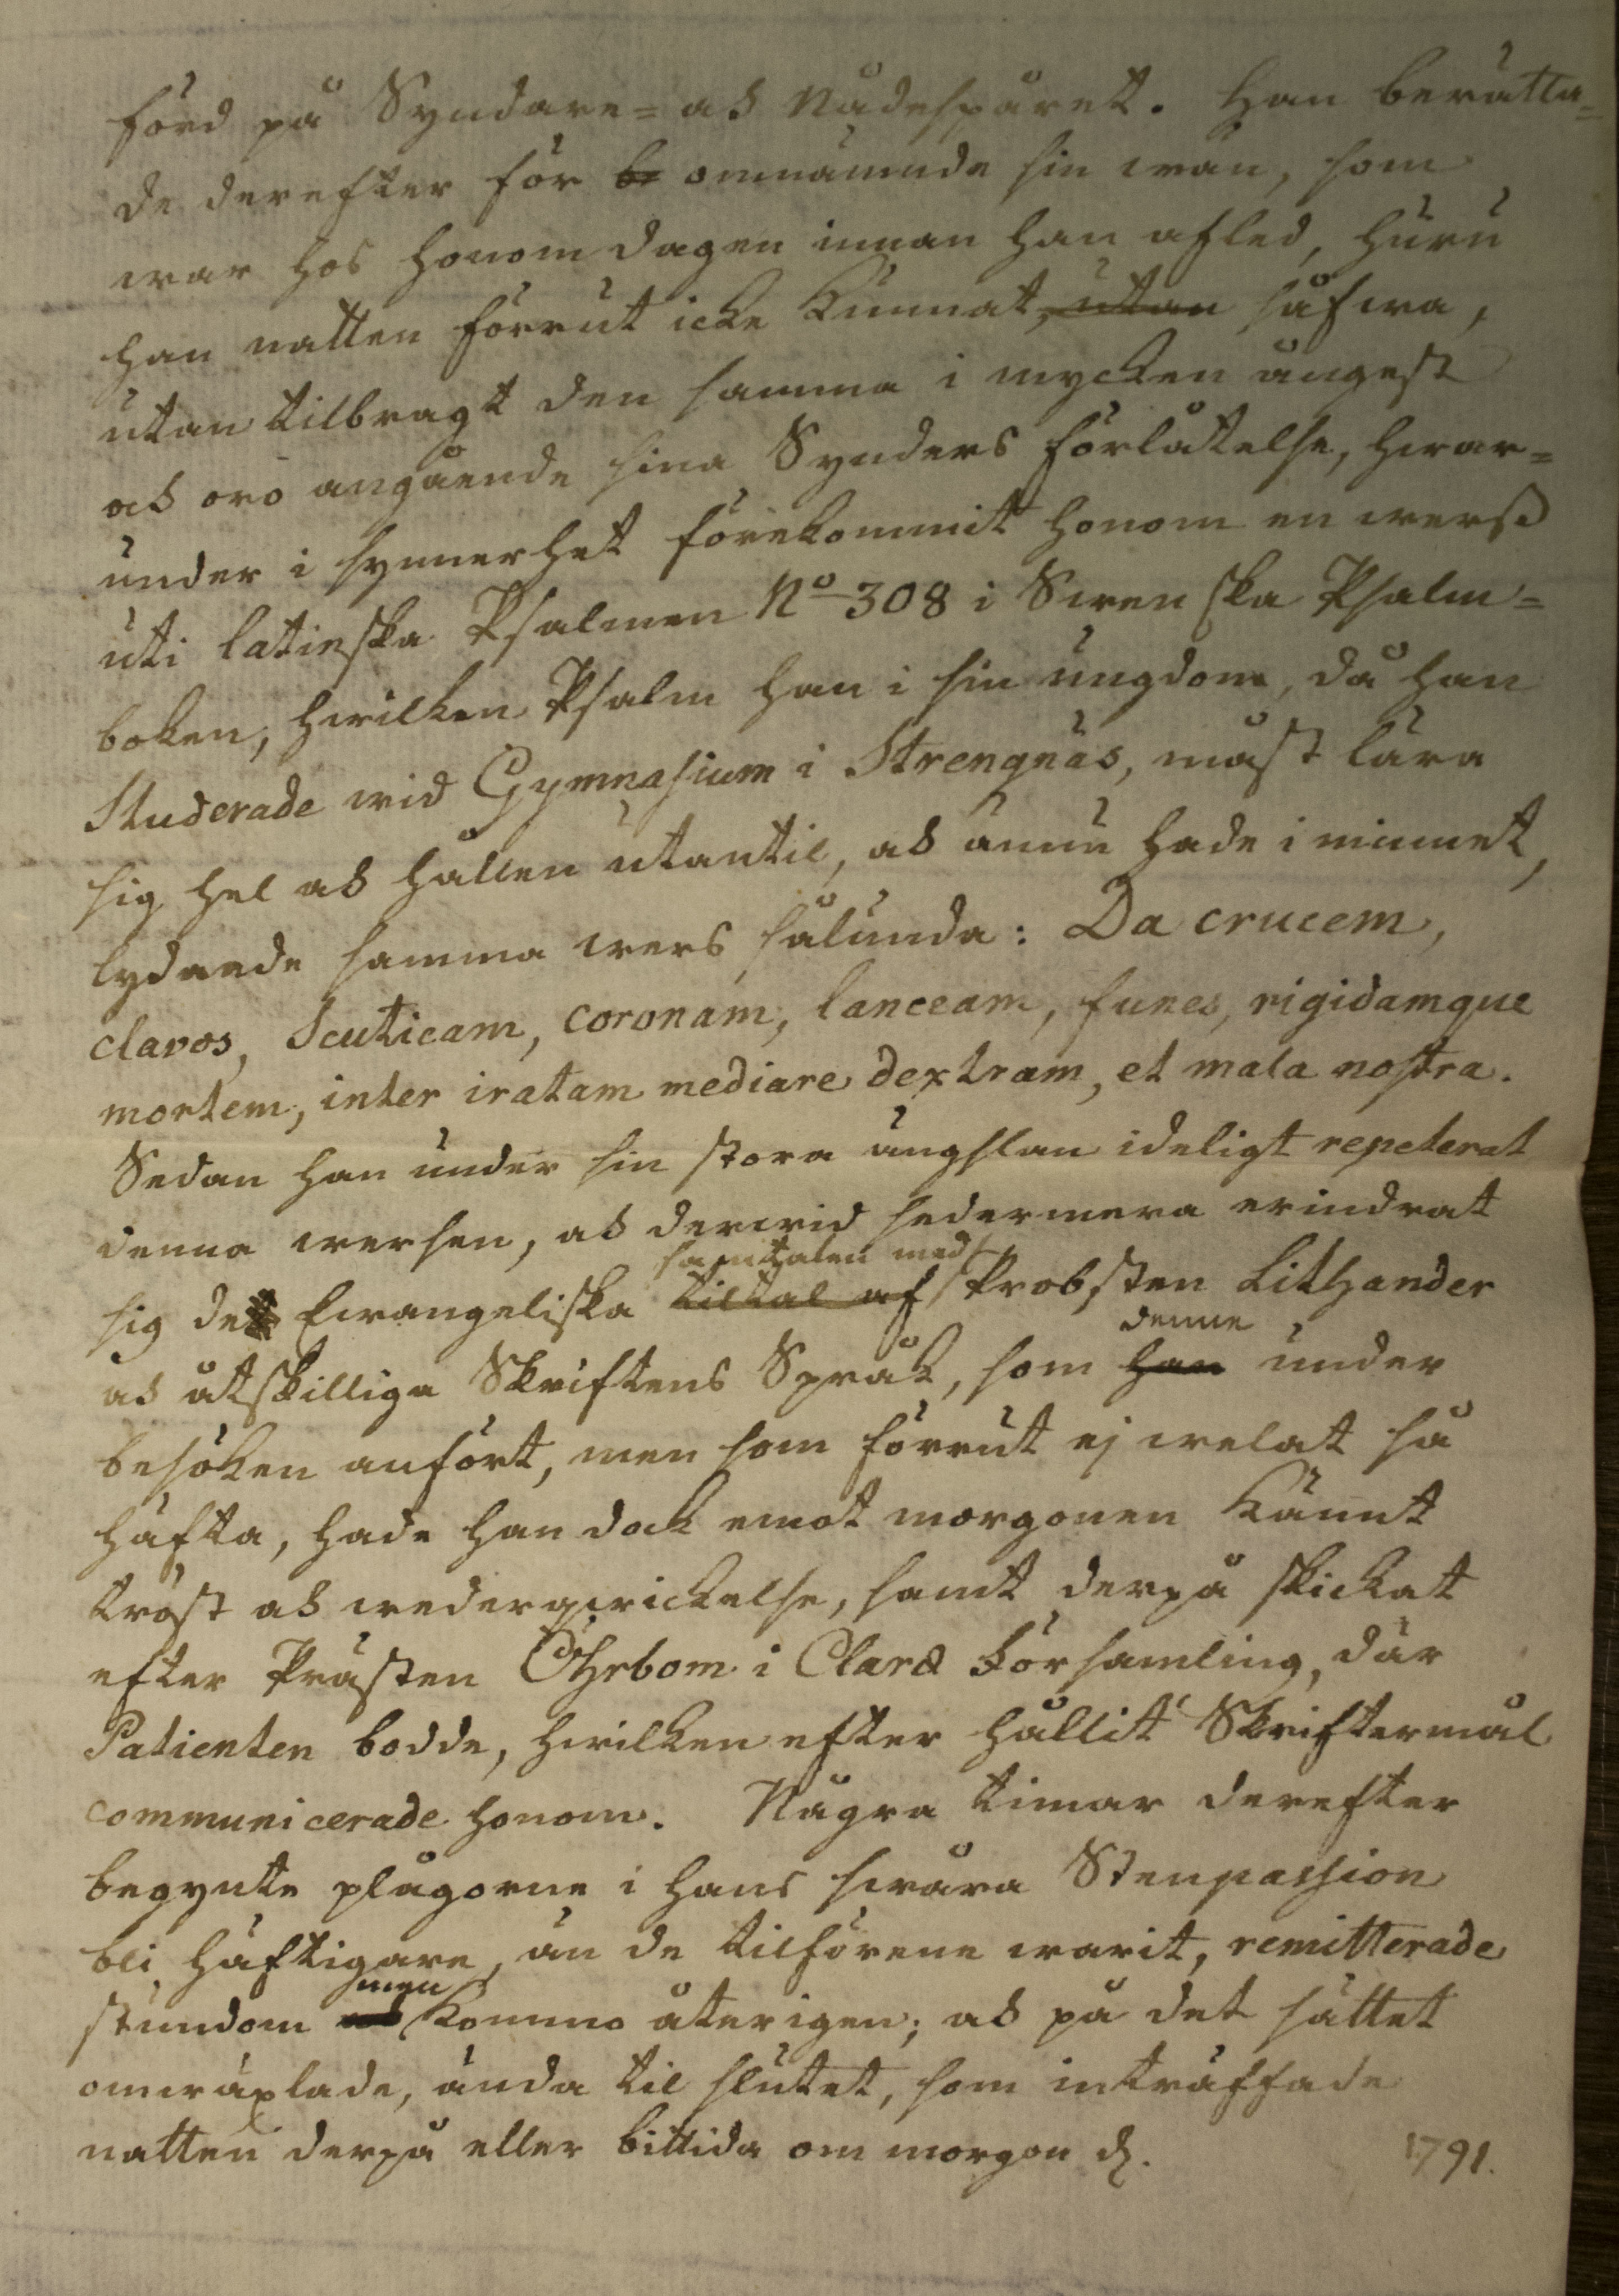 förd på Syndare= och Nådespåret. Han berätta=
de derefter för be omnämnde sin wän, som
war hos honom dagen innan han afled, huru
han natten förrut icke kunnat, utan såfwa,
utan tilbragt den samma i mycken ångest
och oro angående sina Synders förlåtelse, hwar=
under i synnerhet förekommit honom en werss
uti latinska Psalmen No 308 i Swenska Psalm=
boken, hwilken Psalm han i sin ungdom, då han
Studerade wid Gymnasium i Strengnäs, måst lära
sig hel och hållen utantil, och ännu hade i minnet,
lydande samma wers sålunda: Da crucem,
clavos, Scuticam, coronam, lanceam, funes, rigidamque
mortem, inter iratam mediare dextram, et mala nostra.
Sedan han under sin stora ängslan ideligt repeterat
denna wersen, och derwid sedermera erindrat
samtalen med
sig de Ewangeliska tiltal af Probsten Lithander
denne
och åtskilliga Skriftens Språk, som han under
besöken anfört, men som förrut ej welat så
häfta, hade han dock emot morgonen kännt
tröst och wederqwickelse, samt derpå skickat
efter Prästen Öhrbom i Claræ Församling, där
Patienten bodde, hwilken efter hållit Skriftermål
communicerade honom. Några timar derefter
begynte plågorne i hans swåra Stenpassion
bli häftigare, än de tilförene warit, remitterade
men
stundom och kommo återigen; och på det sättet
omwäxlade, ända til slutet, som inträffade
natten derpå eller bittida om morgon d. 1791.